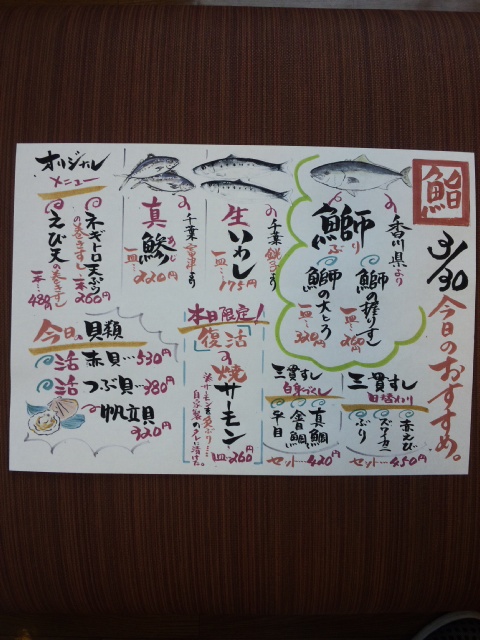 鮨
3/30
今日のおすすめ。
香川県より
鰤
ぶり
鰤の握りずし
一皿…260円
鰤の大とろ
一皿…
千葉銚子より
生いわし
一皿…175円
千葉富津より
真鯵
あじ
一皿…220円
オリジナル
メニュー
ネギトロ天ぷら
の巻きずし
一本…260円
えび天の巻きずし
一本…480円
三貫ずし
日替わり
赤えび
ズワイガニ
ぶり
セット…450円
三貫ずし
白身づくし
真鯛
金目鯛
平目
セット…420円
本日限定!
復活
焼サーモン
自家製のタレに漬けた。
一皿…260円
今日、貝類
活赤貝…530円
活つぶ貝…380円
帆立貝
320円